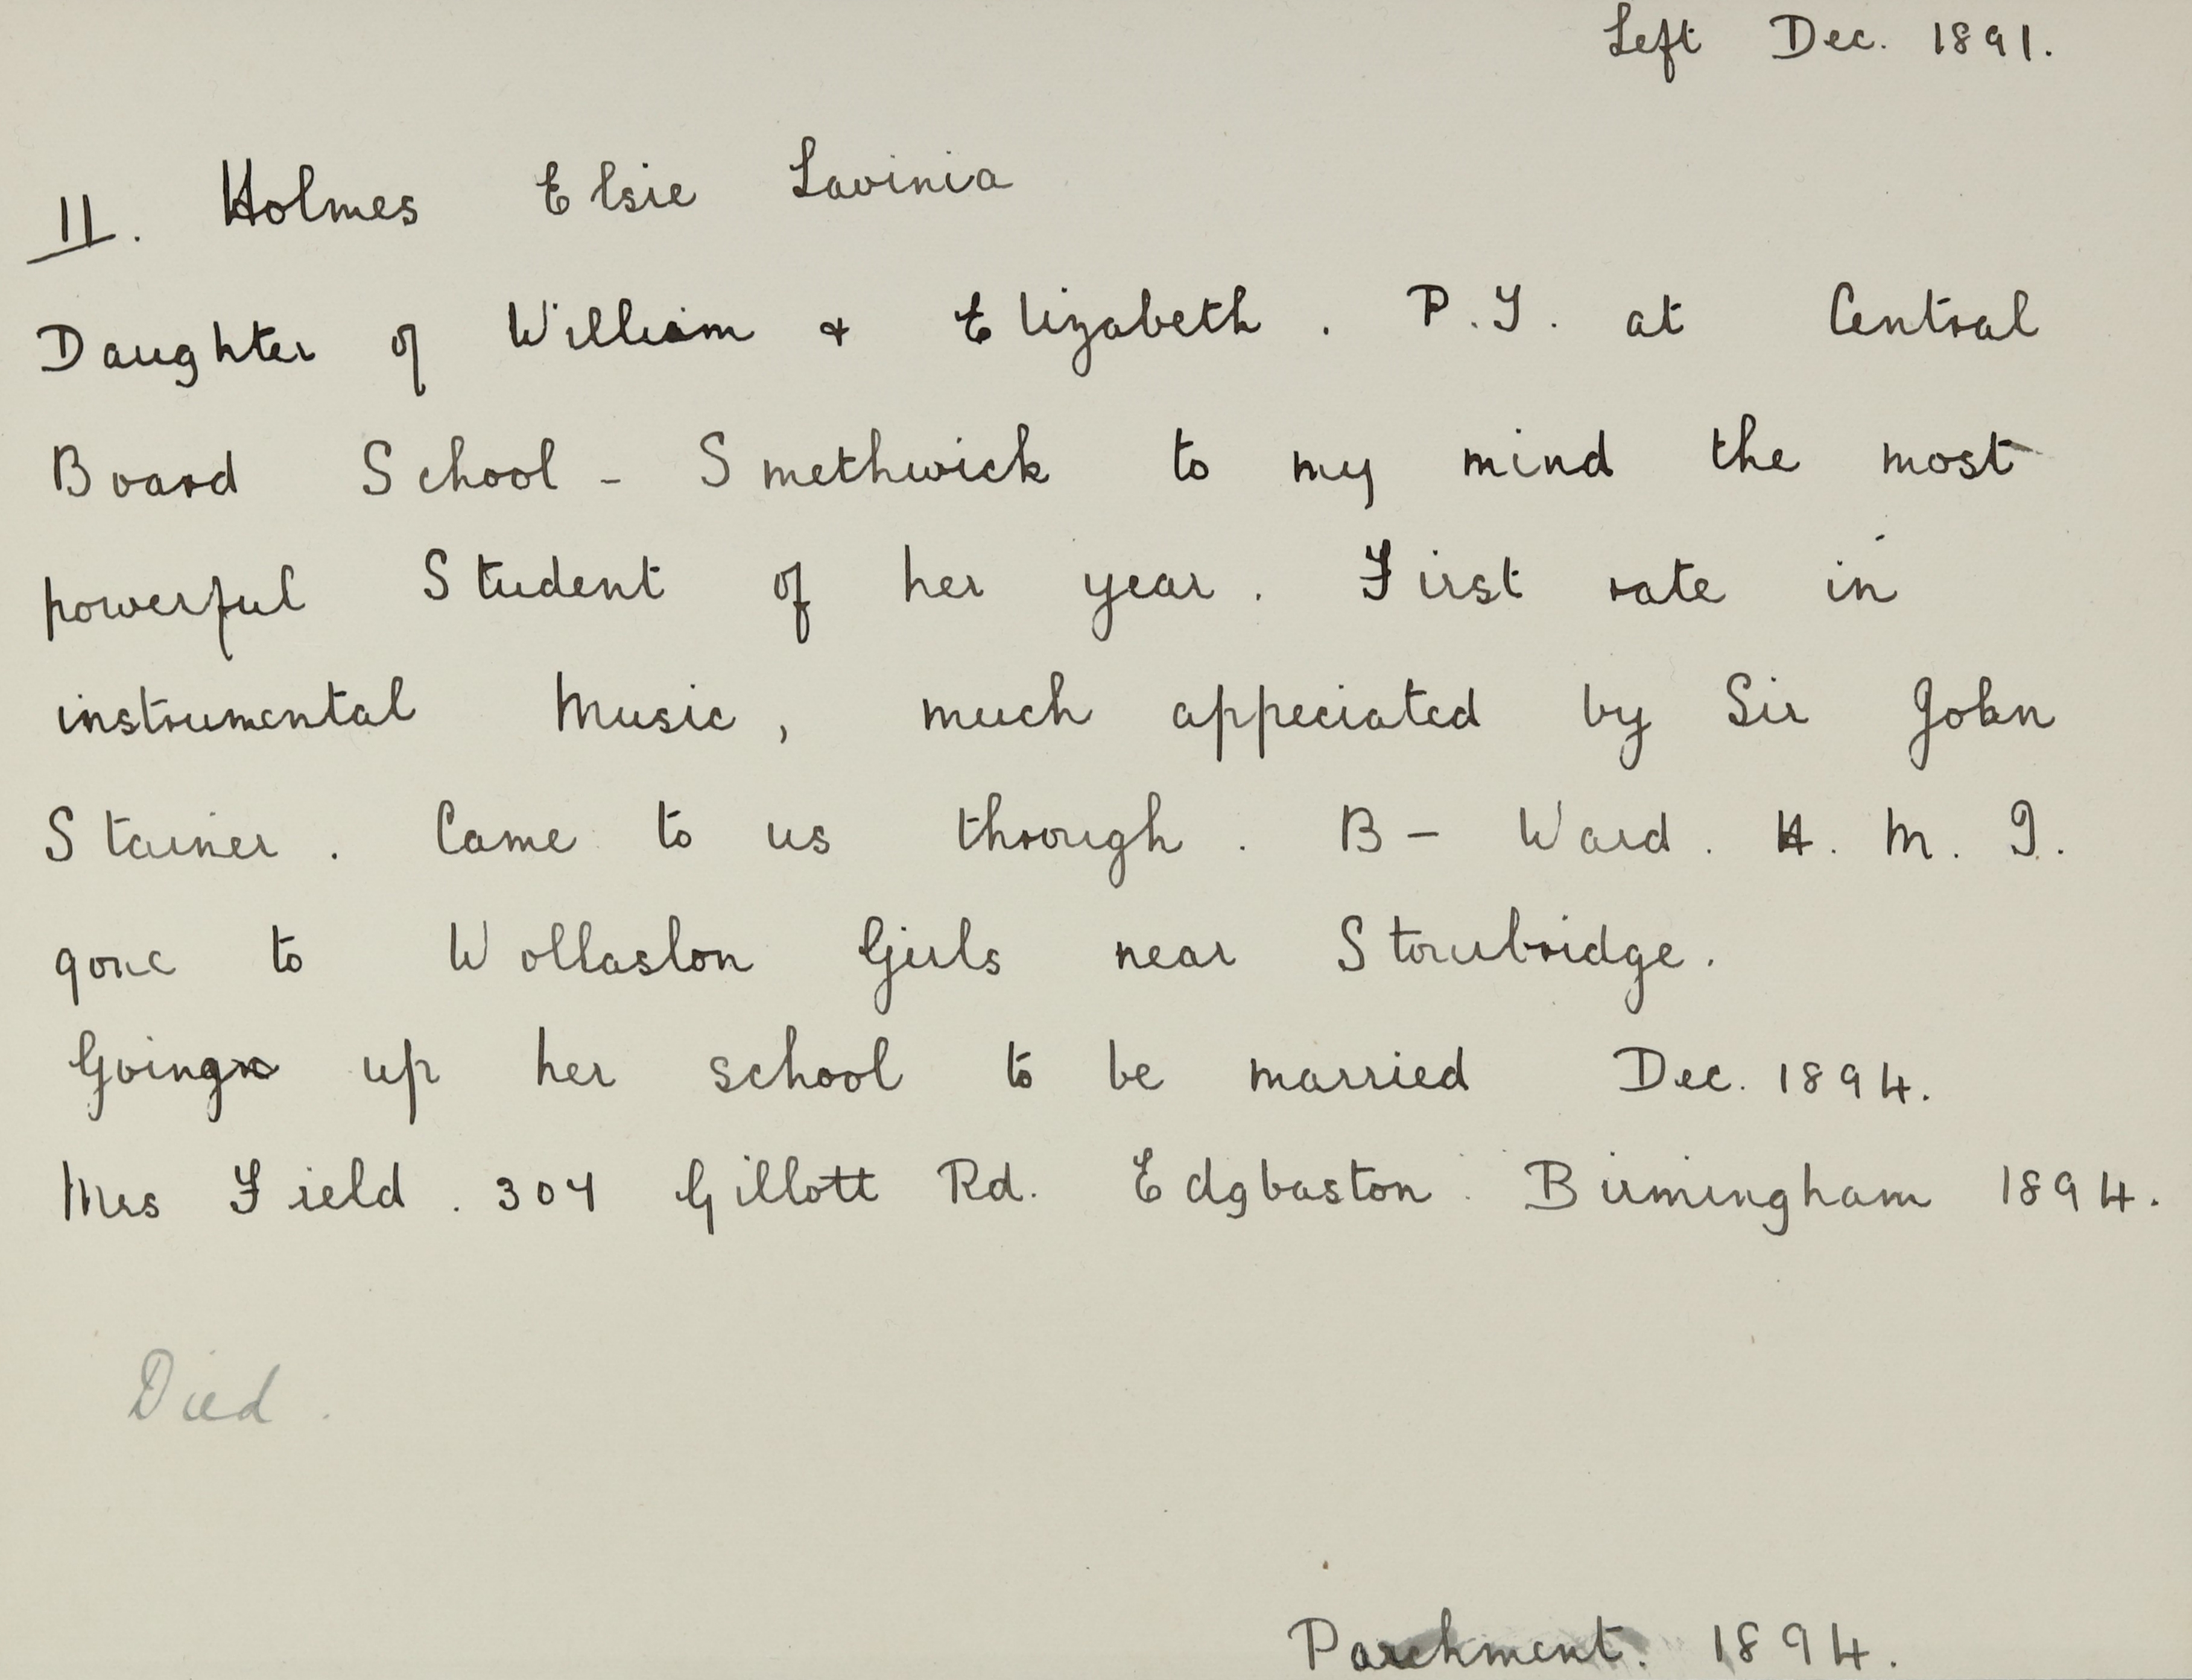 Left Dec. 1891.
11. Holmes Elsie Lavinia
Daughter of William & Elizabeth. P.T. at Central
Board School - Smethwick to my mind the most
powerful Student of her year. First rate in
instrumental Music, much appeciated by Sir John
Stainer. Came to us through. B - Ward. H. M. I.
gone to Wollaston Girls near Stourbridge.
Going up her school to be married Dec. 1894.
Mrs Field. 304 Gillott Rd. Edgbaston. Birmingham 1894.
Died.
Parchment. 1894.